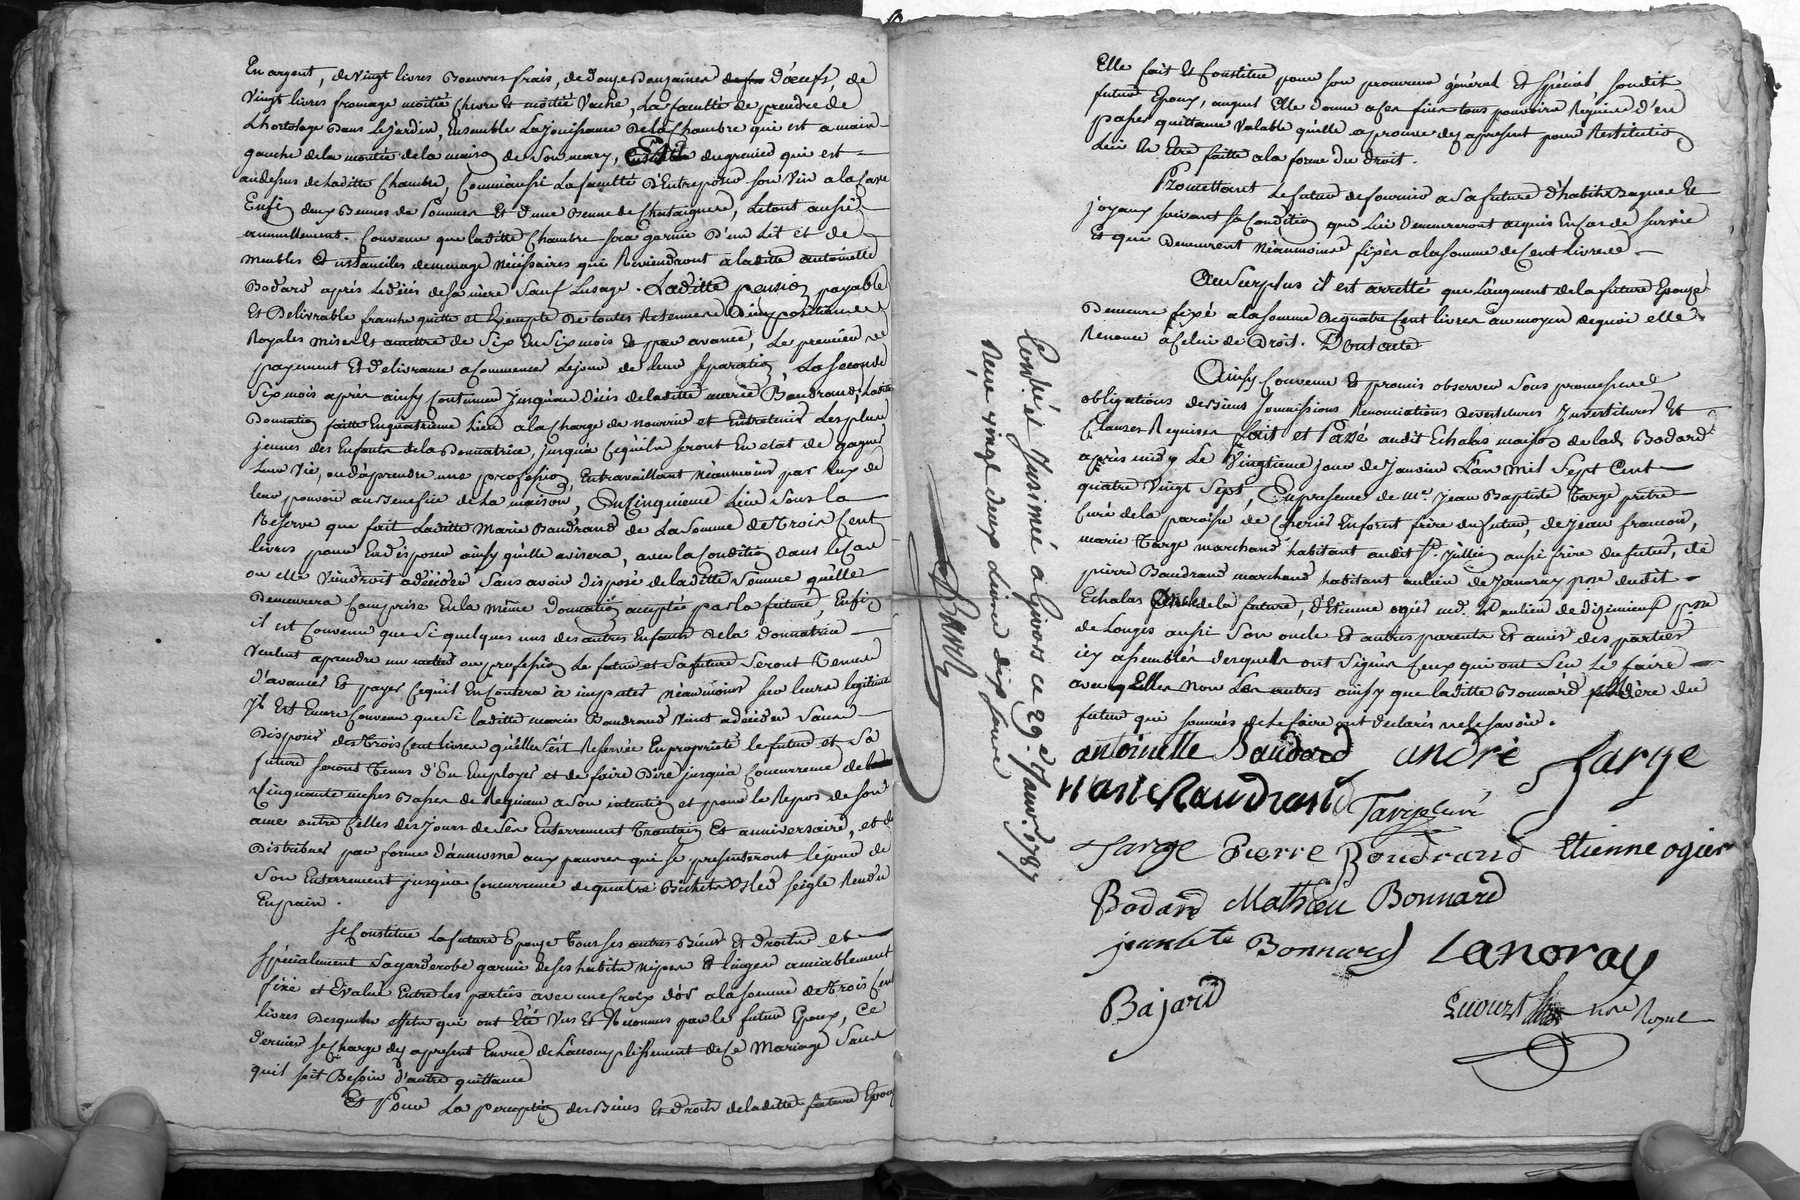 En argent, de vingt livres Beurre frais, de douze Douzaines d'œufs, de
vingt livres fromage moitié chevre et moitié vache, La faculté de prendre de
L'hortolage dans Le jardin, Ensemble La jouissance de la Chambre qui est a main
gauche de la montée de la maison de Son mary, du grenier qui est
au dessus de laditte Chambre, Comm'aussi La faculté d'Entreposer son vin a la Cave
Enfin deux Bennes de Pommes et d'une Benne de Chataignes, Le tout aussi
annuellement. Convenu que laditte Chambre sera garnie d'un Lit et de
meubles et ustanciles de menage Nécessaires qui Reviendront à laditte antoinette
Bodard après le décès de sa mère Sauf Lusage. Laditte pension payable
Et Delivrable franche quitte et Exempte de toutes Retenues d'impositions
Royales mises et amettre de Six En Six mois et par avance, Le premier
payement Et délivrance a Commencer Le jour de leur separation, La seconde
Six mois après ainsy Continuer jusqu'au décès de laditte marie Baudrand, Laditte
Donnation faitte En quatrieme Lieu a la charge de nourrir et Entretenir Les plus
jeunes des Enfants de la Donnatrice, jusqu'à ce qu'ils seront En etat de gagner
Leur vie, ou d'aprendre une profession, En travaillant néanmoins par Eux de
leur pouvoir au Benefice de la maison, En Cinquieme Lieu Sous La
Reserve que fait Laditte Marie Baudrand de La Somme de Trois Cent
livres pour En disposer ainsy qu'elle avisera, avec la Condition dans le Cas
ou elle viendroit a déceder Sans avoir disposé de laditte Somme qu'elle
Demeurera Comprise En la même Donnation acceptée par la future, Enfin
il est Convenu que Si quelques uns des autres Enfants de la Donnatrice
veulent aprendre un metier ou profession Le futur et Sa future Seront Tenus
d'avancer Et payer Ce qu'il En Coutera a imputer néanmoins sur leurs legitimes
Il Est Encore Convenu que Si laditte marie Baudrand vient a déceder Sans
Disposer des Trois Cent livres qu'elle S'est Reservée En propriété le futur et Sa
future seront Tenus d'En Employer et de faire Dire jusqu'a Concurrence de
Cinquante messes Basses de Requiem a Son intention et pour le Repos de Son
ame outre Celles des jours de Son Enterrement Trentain Et anniversaire, et de
Distribuer par forme d'aumone aux pauvres qui se presenteront le jour de
Son Enterrement jusqu'a Concurrence de quatre Bichets Bled seigle Rendu
En pain.
Se Constitue La future Epouse Tous ses autres Biens Et Droits et
specialement Sa garderobe garnie de ses habits nipes Et linges amiablement
fixé et Evalué Entre les parties avec une Croix d'or a la somme de Trois Cent
livres Desquels effets qui ont Eté vus Et Reconnus par le futur Epoux, Ce
dernier se Charge des apresent En vue de L'accomplissement de Ce Mariage Sans
quil soit Besoin d'autre quittance
Et Pour La perception des Biens Et droits de laditte future Epouse
Elle fait et Constitue pour son procureur général Et spécial, Sondit
futur Epoux, auquel Elle donne a ces fins tous pouvoirs Requis d'en
passer quittance valable qu'elle aprouve des apresent pour Restitution
Leur En Etre faitte a la forme du droit.
Promettant Le futur de fournir a Sa future d'habits Bagues Et
joyaux suivant sa Condition qui Lui demeureront acquis En Cas de survie
Et qui Demeurent néanmoins fixés a la somme de Cent livres.
Au Surplus il est arretté que L'augment de la future Epouse
Demeure fixé a la somme de quatre Cent livres au moyen de quoi elle
Renonce a Celui de Droit. Dont acte
Ainsy Convenu et promis observer sous promesses
obligations de Biens Soumissions Renonciations devestitures Investitures Et
Clauses Requises fait et Passé audit Echalas maison de lad. Bodard
après midy Le vingtieme jour de janvier L'an mil Sept Cent
quatre vingt Sept, En presence de Mre. Jean Baptiste Farge pretre
Curé de la paroisse de Cherier En forest frere du futur, de Jean francois,
marie Farge marchand habitant audit St. Jullien aussi frere du futur, de
pierre Baudrand marchand habitant au lieu de Janoray psse dudit
Echalas oncle de la future, d'Etienne ogier md. au lieu de dizimieux psse
de Longes aussi Son oncle et autres parents et amis des parties
icy assemblés desquels ont Signés Ceux qui ont Seu Le faire
avec Elles non Les autres ainsy que laditte Bonnard mère du
futur qui sommés de le faire ont declarés ne le savoir.
antoinette Baudard andré farge
Marie Baudrand Farge curé
Farge Pierre Boudrand Etienne ogier
Bodard Mathieu Bonnard
Bonnard Lanoray
Bajard
nore Royal
Contrôlé et Insinué a Givors ce 29e. Janvr. 1787
Reçu vingt deux livres dix sous